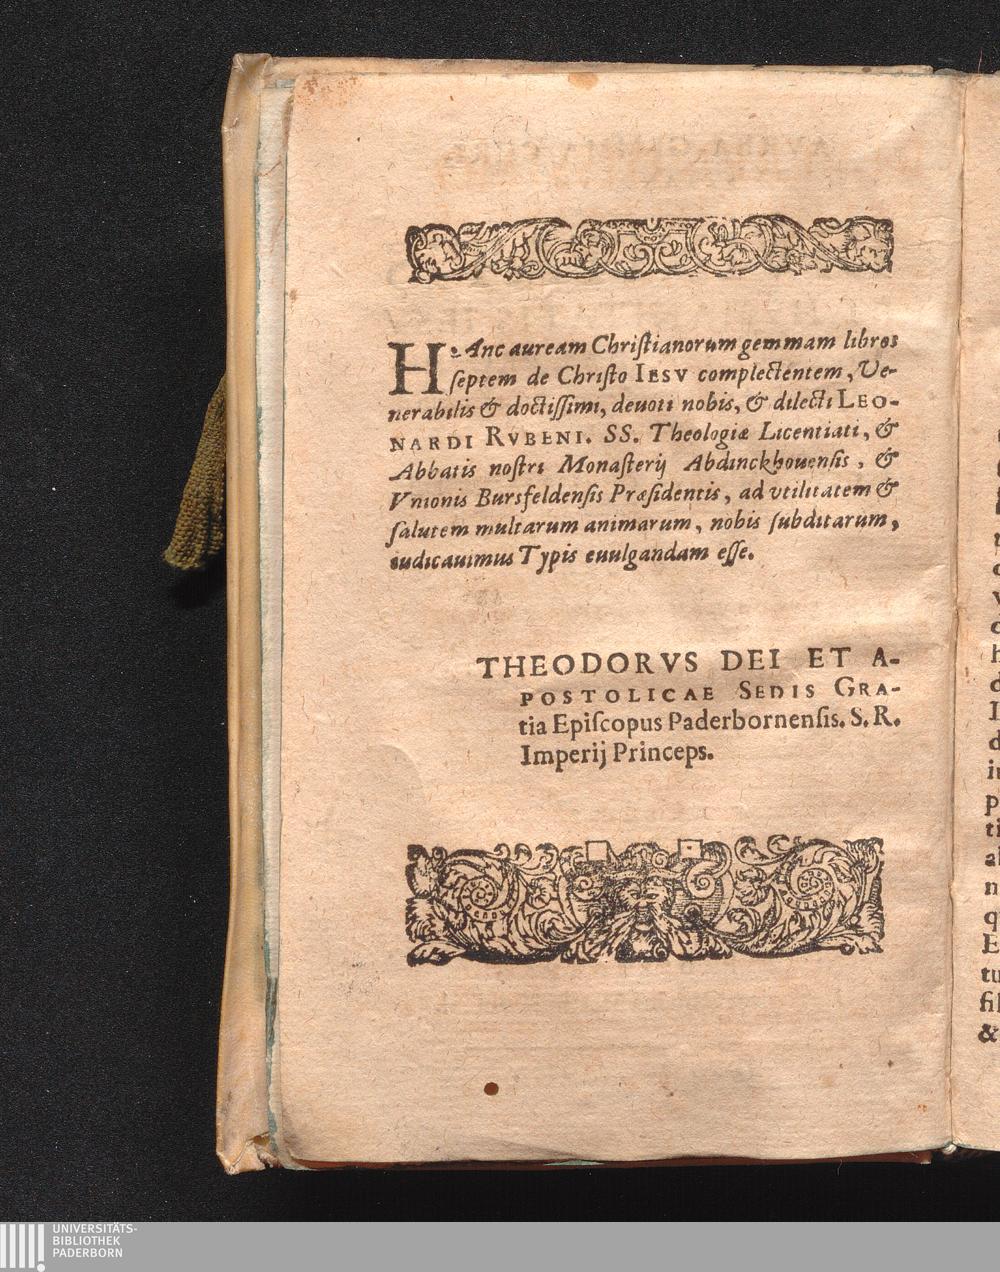 HAnc auream Chriſtianorum gemmam libros
ſeptem de Chriſto IESV complectentem, Ve-
nerabilis & doctiſſimi, deuoti nobis, & dilecti LEO-
NARDI RVBENI. SS. Theologiæ Licentiati, &
Abbatis noſtri Monaſterij Abdinckhouenſis, &
Vnionis Bursfeldenſis Præſidentis, ad vtilitatem &
ſalutem multarum animarum, nobis ſubditarum,
iudicauimus Typis euulgandam eſſe.
THEODORVS DEI ET A-
POSTOLICAE SEDIS GRA-
tia Epiſcopus Paderbornenſis. S. R.
Imperij Princeps.
UNIVERSITÄTS-
BIBLIOTHEK
PADERBORN